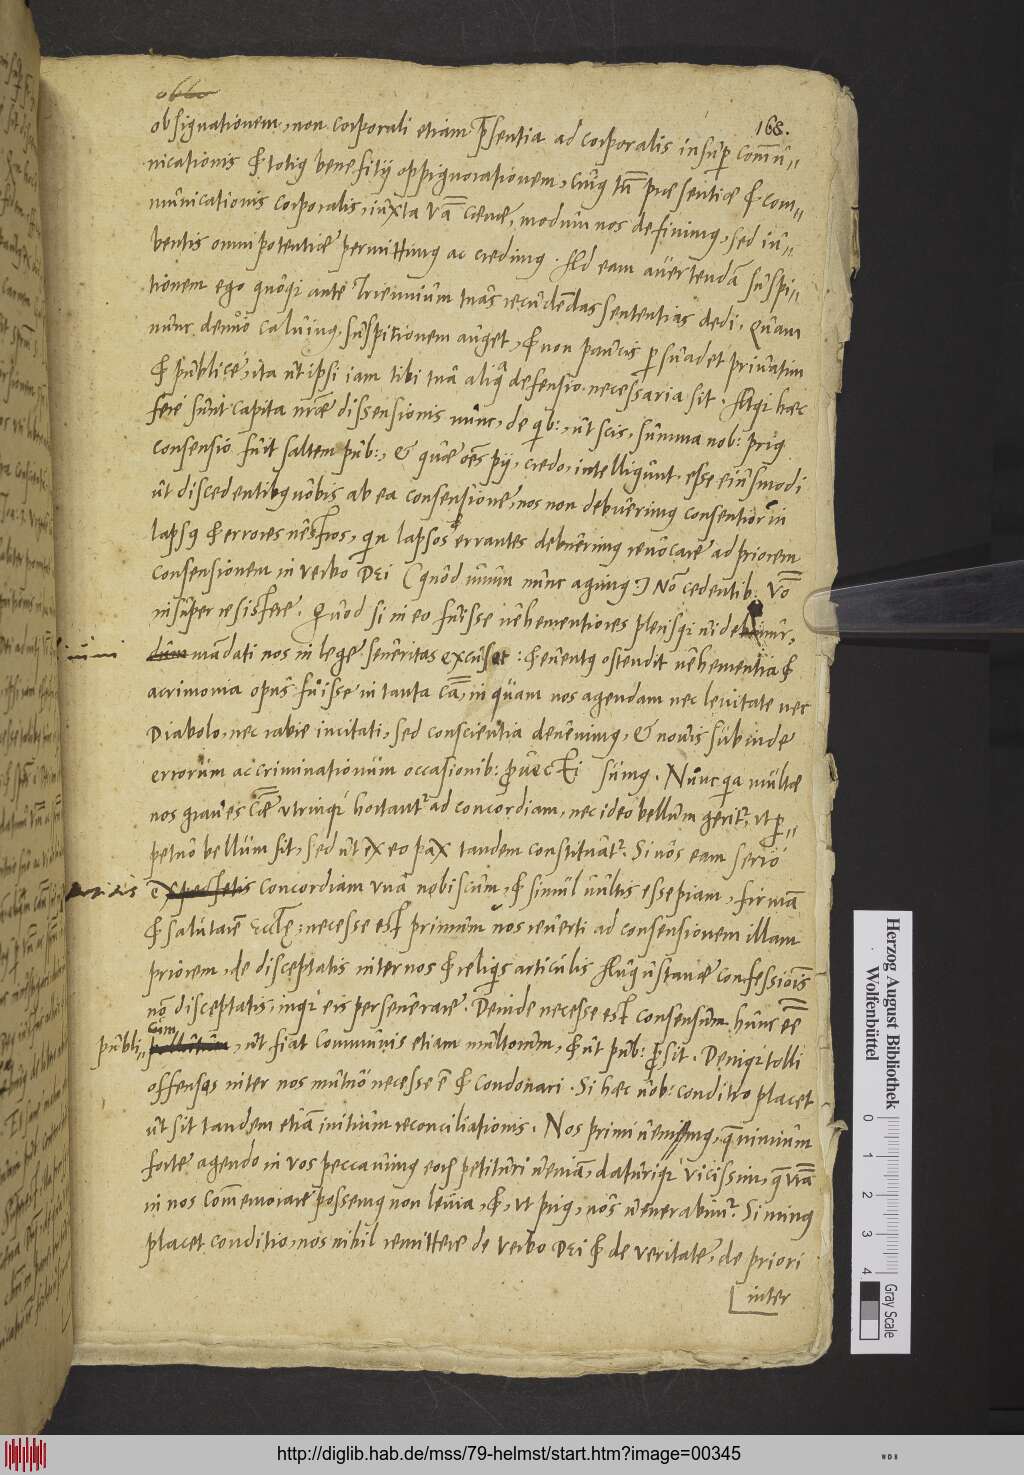 168.
obsignationem, non corporali etiam p̄sentia ad corporalis insup comū-
nicationis & totiq benefitij oppignorationem, cuiq tn̄ præsentiæ & com-
municationis corporalis, iuxta vām cænæ, modum nos definimq, sed iu-
bentis omnipotentiæ permittimq ac credimq. Ad eam auertendā suspi-
tionem ego quoq ante Triennium tuas recudēdas sententias dedi. Quam
nunc denuo caluinq, suspitionem auget, & non paucis psuadet priuatim
& publice, ita ut ipsi iam tibi tua aliq defensio necessaria sit. Atq hæc
fere sunt capita nræ dissensionis nunc, de qib:, ut scis, summa nob: priq
consensio fuit saltem pub:, & quæ oēs pij, credo, intelligunt esse eiusmodi
ut discedentibq uobis ab ea consensione, nos non debuerimq consentior in
lapsq & errores uestros, qin lapsos & errantes debuerimq reuocare ad priorem
consensionem in verbo Dei (quod unum nunc agimq) No cedentib: vo
insuper resistere. Quod si in eo fuisse uehementiores plerisq uidemur,
mandati nos in lege seueritas excuset: & euentq ostendit uehementia &
acrimonia opus fuisse in tanta cā, in quam nos agendam nec leuitate nec
Diabolo, nec rabie incitati, sed conscientia deuenimq, & nouis subinde
errorum ac criminationum occasionib: prouecti sumq. Nunc qa multæ
nos graues cāe utrinq hortantr ad concordiam, nec ideo bellum geritr, ut p-
petuo bellum sit, sed ut ex eo pax tandem constituatr. Si uos eam serio
concordiam una nobiscum, & simul uultis esse piam, firmā
& salutarē Ecclę, necesse est primum uos reuerti ad consensionem illam
priorem, de disceptatis inter nos & reliqis articulis Augustanæ confessionis
no disceptatis, inq eis perseuerare. Deinde necesse est consensum hunc ēē
publi-cum, ut fiat communis etiam multorum, & ut pub: prosit. Deniq tolli
offensas inter nos mutuo necesse ē & condonari. Si hæc uob: conditio placet
ut sit tandem etiā initium reconciliationis. Nos primi ueniamq, nimium
forte agendo in vos peccauimq petituri ueniam, daturiq vicissim, q vrā
in nos commemorare possemq non leuia, &, ut priq, uos uenerabimr. Si minq
placet conditio, nos nihil remittere de verbo Dei & de veritate, de priori
inter
Herzog August Bibliothek
Wolfenbüttel
0 1 2 3 4
Gray Scale
http://diglib.hab.de/mss/79-helmst/start.htm?image=00345
WDB